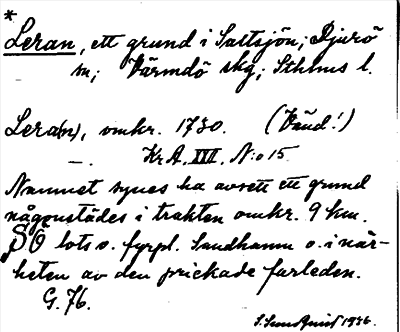 *
Leran, ett grund i Saltsjön; Djurö
sn; Värmdö skg; Sthlms l.
Lera(n), omkr. 1730. (Vänd!)
—. Kr.A. III. N:o 15.
Namnet synes ha avsett ett grund
någonstädes i trakten omkr. 9 km.
SO lots o. fyrpl. Sandhamn o. i när-
heten av den prickade farleden.
G. 76.
S. Sundquist 1936.